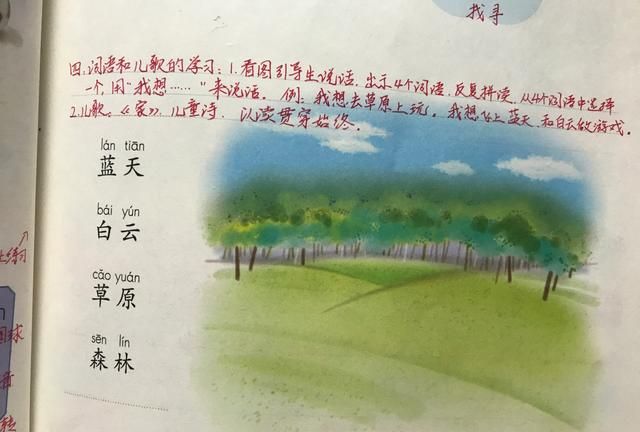 找寻
四.词语和儿歌的学习:1.看图引导生说话,出示4个词语,反复拼读,从4个词语中选择
一个,用“我想……”来说话。例:我想去草原上玩。我想飞上蓝天,和白云做游戏。
2.儿歌。《家》,儿童诗,以读贯穿始终。
lán tiān
蓝天
bái yún
白云
cǎo yuán
草原
sēn lín
森林
练习
球
转